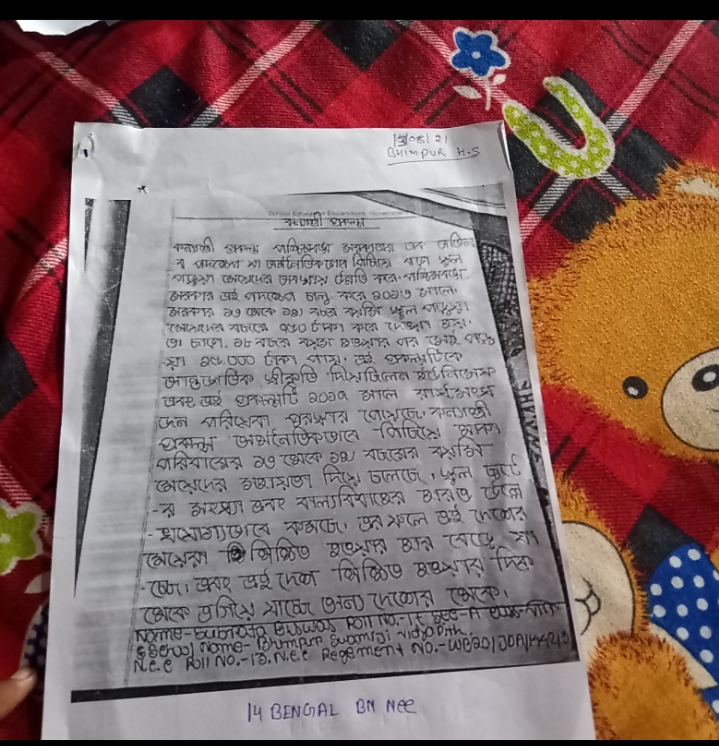 13/08/21
BHIMPUR H.S
কন্যাশ্রী প্রকল্প
কন্যাশ্রী প্রকল্প পশ্চিমবঙ্গ সরকারের এক
যা অর্থনৈতিকভাবে পিছিয়ে থাকা স্কুল
পড়ুয়া মেয়েদের উৎসাহ তৈরি করে। পশ্চিমবঙ্গ
সরকার এই পদক্ষেপ চালু করে ২০১৩ সালে।
সরকার ১৩ থেকে ১৯ বছর বয়সী স্কুল পড়ুয়া
মেয়েদের বছরে ৭৫০ টাকা করে দেওয়া হয়।
তা ছাড়া, ১৮ বছর বয়স হওয়ার পর সেই
২৫,০০০ টাকা পায়। এই প্রকল্পটিকে
আন্তর্জাতিক স্বীকৃতি দিয়েছিলেন ইউনিসেফ
এবং এই প্রকল্পটি ২০১৭ সালে রাষ্ট্রসংঘ
জন পরিষেবা পুরস্কার পেয়েছে। কন্যাশ্রী
প্রকল্প অর্থনৈতিকভাবে পিছিয়ে থাকা
পরিবারের ১৩ থেকে ১৯ বছরের বয়সী
মেয়েদের সহায়তা দিয়ে চলেছে। স্কুল ছুট
-র সংখ্যা এবং বাল্যবিবাহের হারও উল্লে
-খযোগ্যভাবে কমছে। এর ফলে এই দেশের
মেয়েরা শিক্ষিত হওয়ার হার বেড়ে যা
-চ্ছে। এবং এই দেশ শিক্ষিত হওয়ার দিক
থেকে এগিয়ে যাচ্ছে অন্য দেশের থেকে।
Name- Subrata Biswas Roll No.-
School Name- Bhimpur Swamiji Vidyapith
N.C.C Roll No.-12. N.C.C Regement No.-
14 BENGAL BN Nee